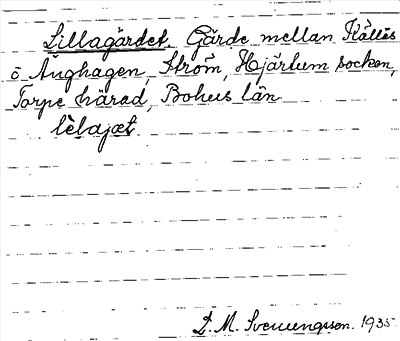 Lillagärdet. Gärde mellan Källes
o Äughagen, Ström, Hjärtum socken,
Torpe härad, Bohus län.
lèlajæt.
D. M. Svenungsson. 1935